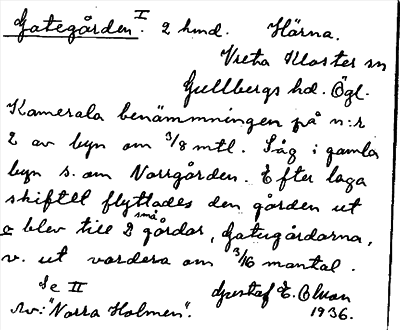 Gategården I. 2 hmd. Härna.
Vreta Kloster sn
Gullbergs hd. Ögl.
Kamerala benämmningen på n:r
2 av byn om 3/8 mtl. Låg i gamla
byn s. om Norrgården. Efter laga
skiftet flyttades den gården ut
o blev till 2 små gårdar, Gategårdarna,
v. ut vardera om 3/16 mantal.
Se II
Av: "Norra Holmen". Gustaf E. Olson
1936.